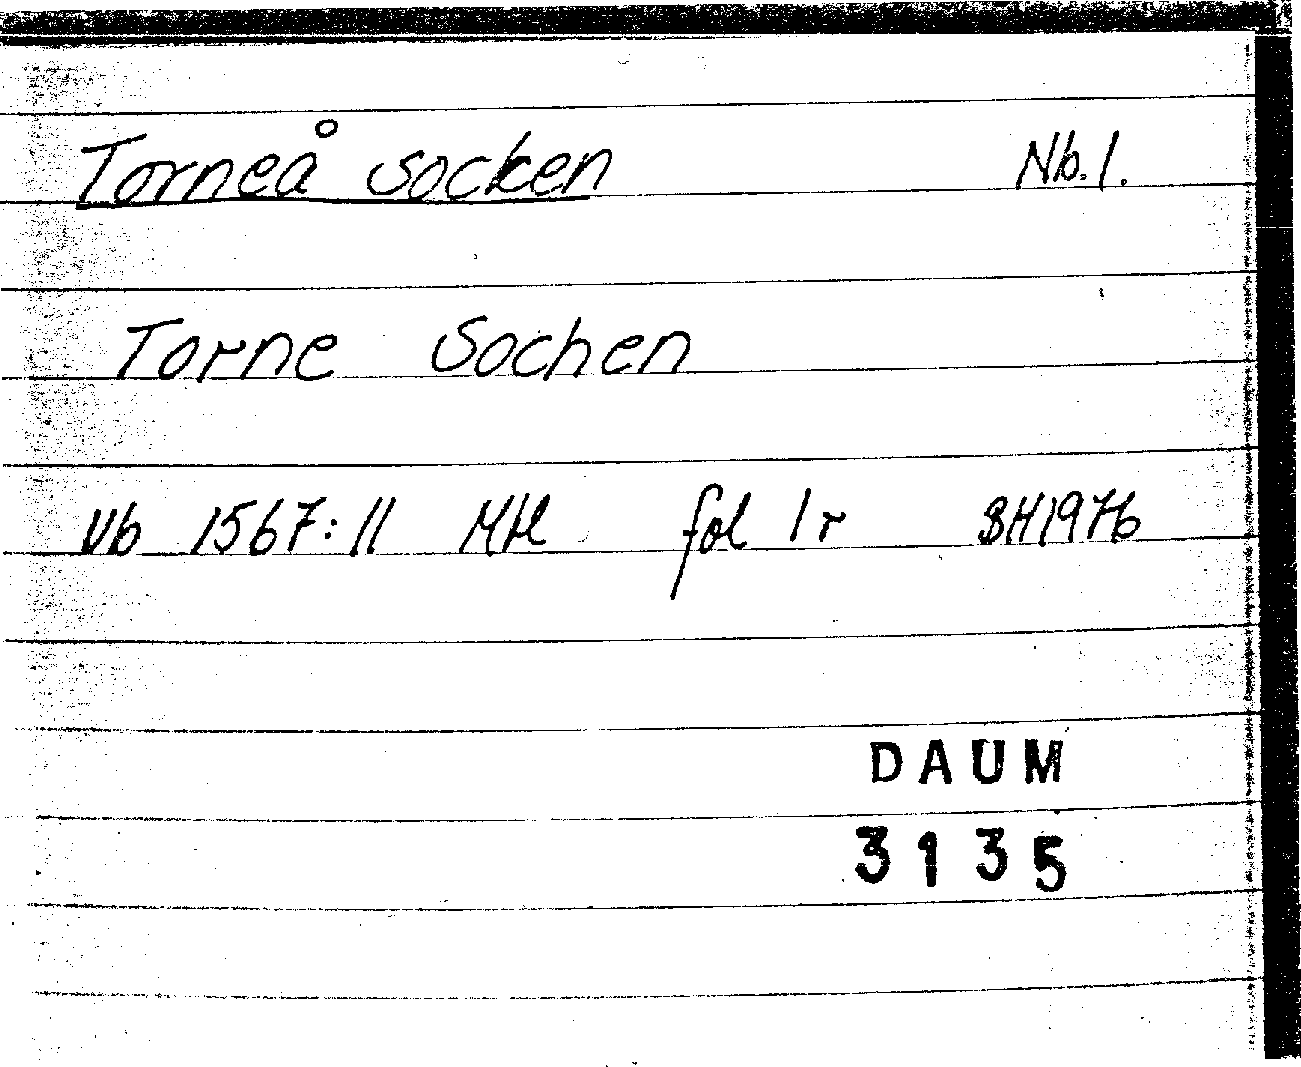 Torneå socken Nb. l.
Torne Sochen
Vb 1567:11 Mtl fol 1r BH1976
DAUM
3135